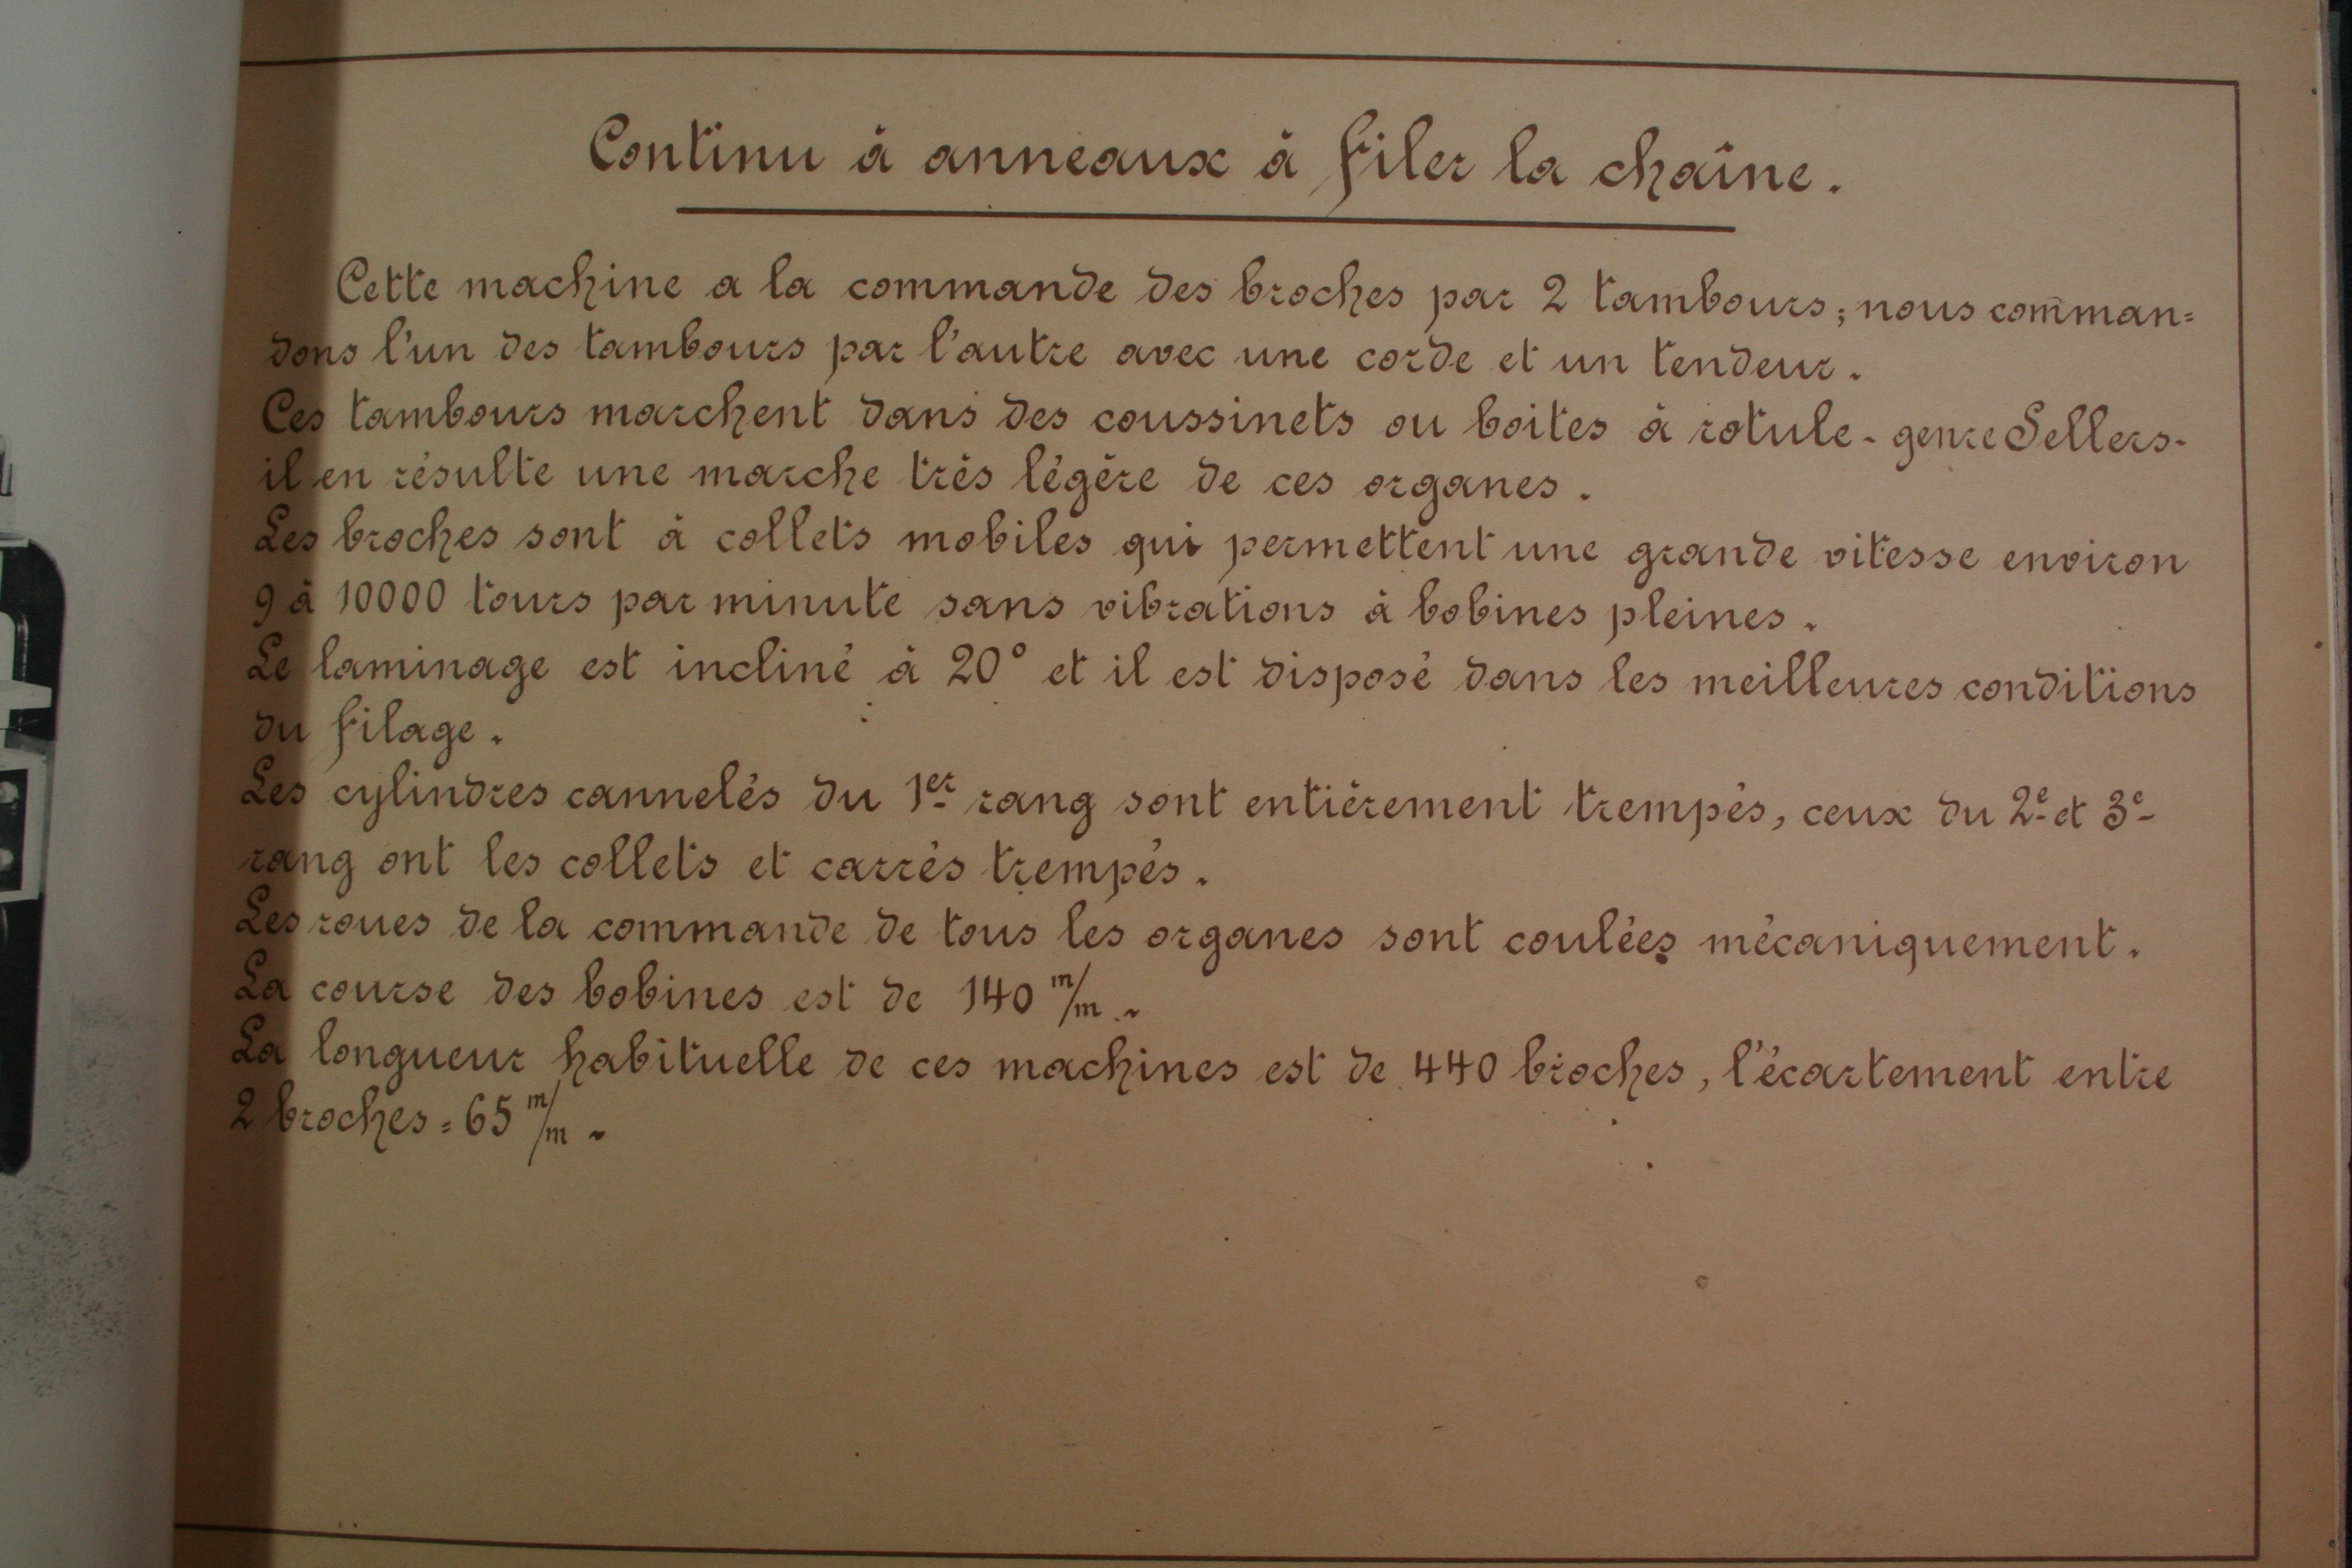 Continu à anneaux à filer la chaîne.
Cette machine a la commande des broches par 2 tambours; nous comman=
dons l'un des tambours par l'autre avec une corde et un tendeur.
Ces tambours marchent dans des coussinets ou boites à rotule - genre Sellers -
il en résulte une marche très légère de ces organes.
Les broches sont à collets mobiles qui permettent une grande vitesse environ
9 à 10000 tours par minute sans vibrations à bobines pleines.
Le laminage est incliné à 20° et il est disposé dans les meilleures conditions
du filage.
Les cylindres cannelés du 1er rang sont entièrement trempés, ceux du 2e et 3e
rang ont les collets et carrés trempés.
Les roues de la commande de tous les organes sont coulées mécaniquement.
La course des bobines est de 140 m/m.
La longueur habituelle de ces machines est de 440 broches, l'écartement entre
2 broches = 65 m/m.